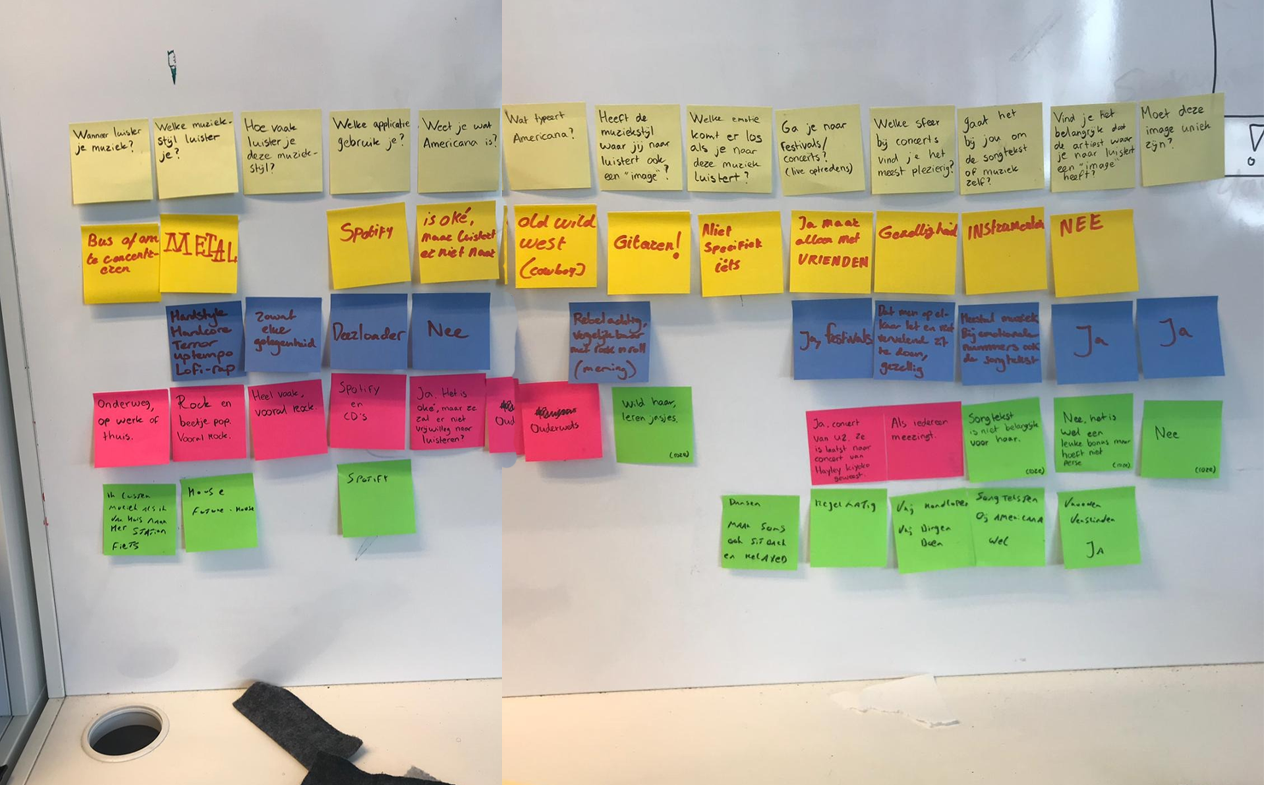 Wanneer luister
je muziek?
Welke muziek-
stijl luister
je?
Hoe vaak
luister je
deze muziek-
stijl?
Welke applicatie
gebruik je?
Weet je wat
Americana is?
Wat typeert
Americana?
Heeft de
muziekstijl
waar jij naar
luistert ook
een "image"?
Welke emotie
komt er los
als je naar
deze muziek
luistert?
Ga je naar
Festivals/
concerts?
(live optredens)
Welke sfeer
bij concerts
vind je het
meest plezierig?
gaat het
bij jou om
de songtekst
of muziek
zelf?
Vind je het
belangrijk dat
de artiest waar
je naar luistert
een "image"
heeft?
Moet deze
image uniek
zijn?
Bus of om
te concentr-
eren
METAL
Spotify
is oké,
maar luistert
er niet naar
old wild
west
(cowboy)
Gitaren!
Niet
Specifiek
iets
Ja maar
alleen met
VRIENDEN
Gezelligheid
INstrumentaal
NEE
Hardstyle
Hardcore
Terror
uptempo
Lofi-rap
Zowat
elke
gelegenheid
Deezloader
Nee
Rebel achtig,
vergelijkbaar
met rock n roll
(mening)
Ja, festivals
Dat men op el-
kaar let en niet
vervelend zit
te doen,
gezellig
Meestal muziek
Bij emotionele
nummers ook
de songtekst
Ja
Ja
Onderweg,
op werk of
thuis.
Rock en
beetje pop.
Vooral Rock.
Heel vaak,
vooral rock.
Spotify
en
CD's
Ja. Het is
oké, maar ze
zal er niet
vrijwillig naar
luisteren?
Oud
Ouderwets
Wild haar,
leren jasjes.
Ja, concert
van U2. Ze
is laatst naar
concert van
Hayley
geweest
Als iedereen
meezingt
Songtekst
is niet belangrijk
voor haar.
Nee, het is
wel een
leuke bonus maar
hoeft niet
perse
Nee
Ik luister
muziek als ik
van huis naar
het station
fiets
House
Future-House
Spotify
Dansen
maar soms
ook sit back
en relaxed
Regelmatig
Vrij
Vrij Dingen
Doen
Songteksten
Bij Americana
wel
Vrienden
Ja